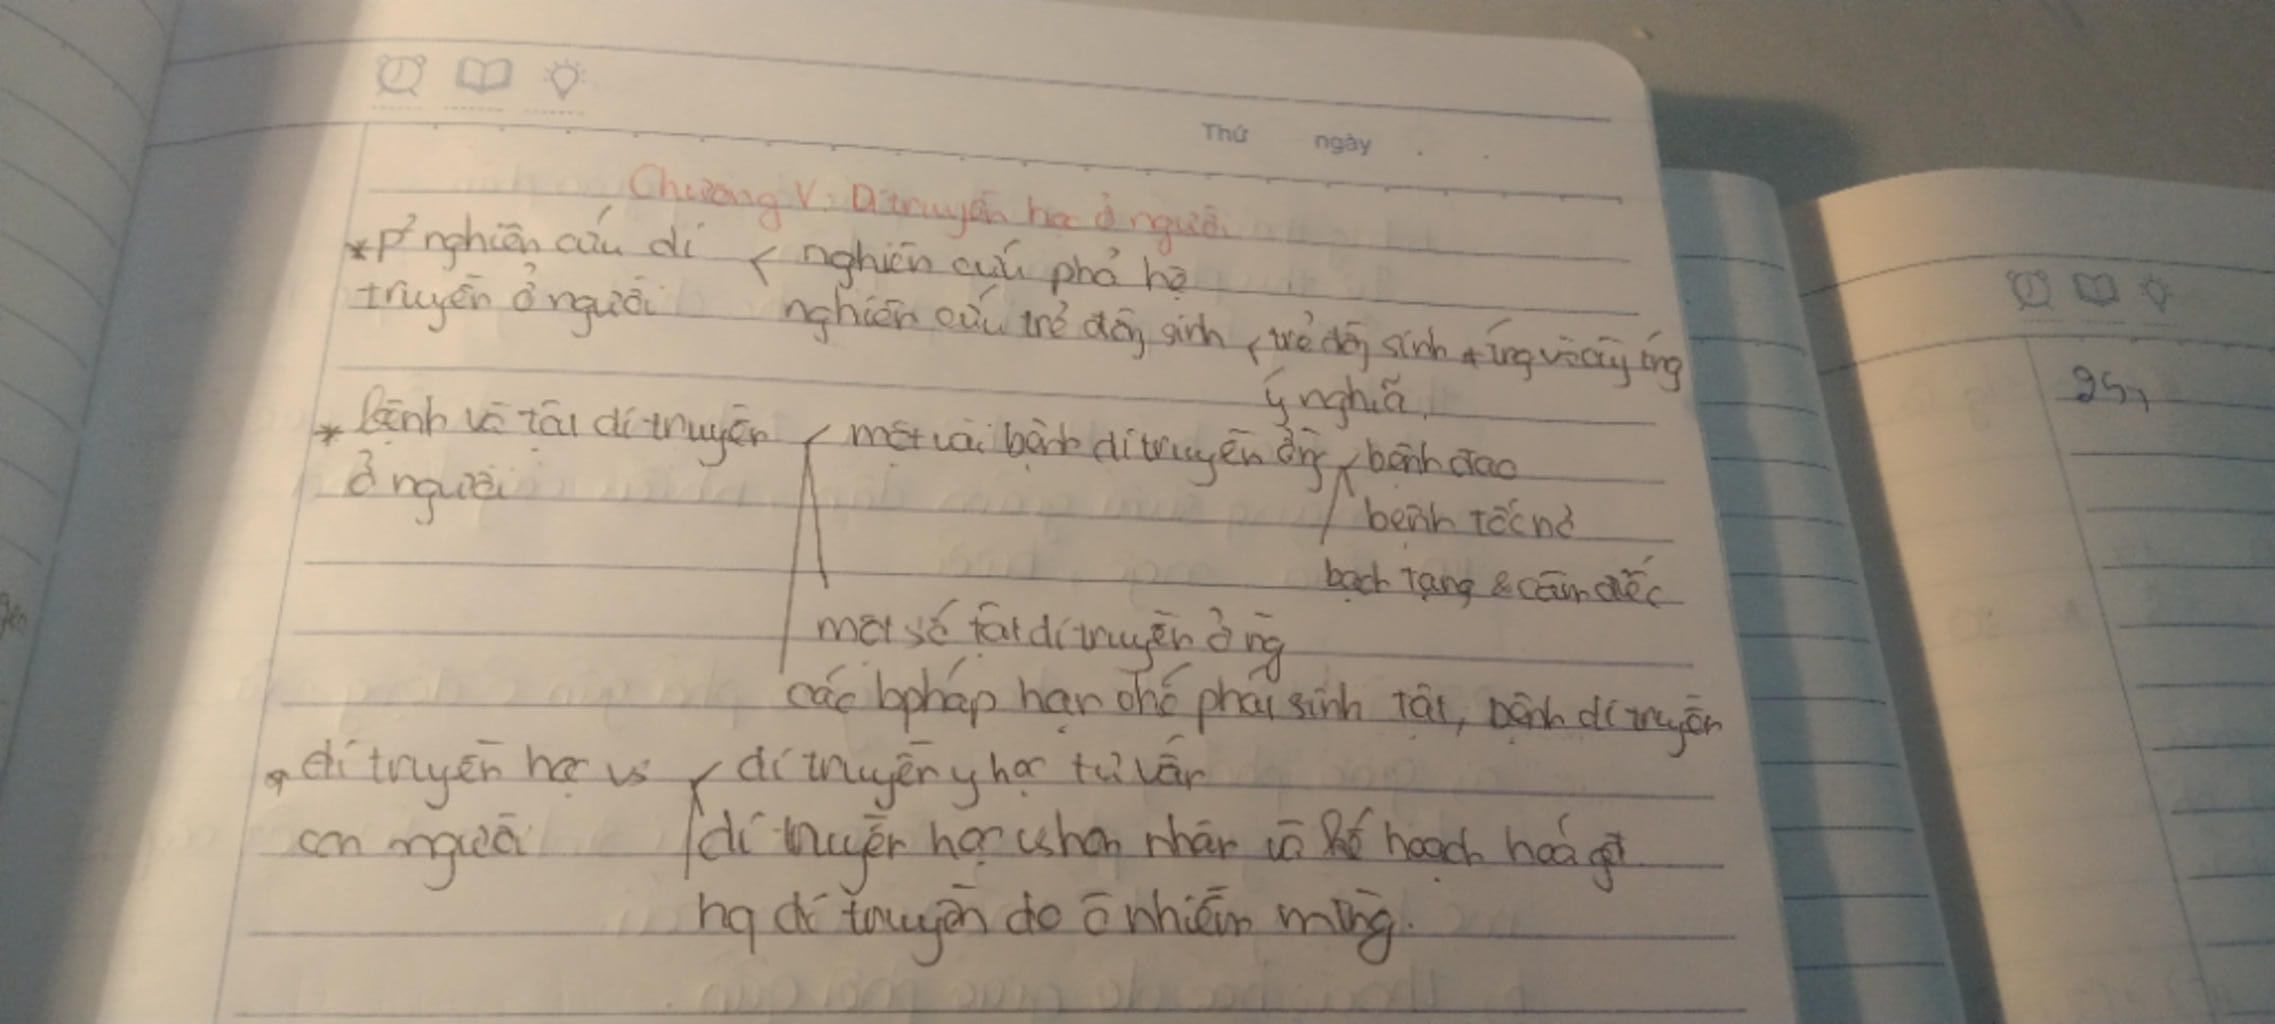 Thứ ngày
Chương V: Di truyền học ở người
* P² nghiên cứu di < nghiên cứu phả hệ
truyền ở người nghiên cứu trẻ đồng sinh < trẻ đồng sinh + trứng và cùng trứng
ý nghĩa
* Bệnh và tật di truyền < một vài bệnh di truyền ở ng < bệnh đao
ở người bệnh tớcnơ
bạch tạng & câm điếc
một số tật di truyền ở ng
các bpháp hạn chế phát sinh tật, bệnh di truyền
* di truyền học vs < di truyền y học tư vấn
con người di truyền học vs hôn nhân và kế hoạch hoá gđ
hq di truyền do ô nhiễm mtrg.
25,